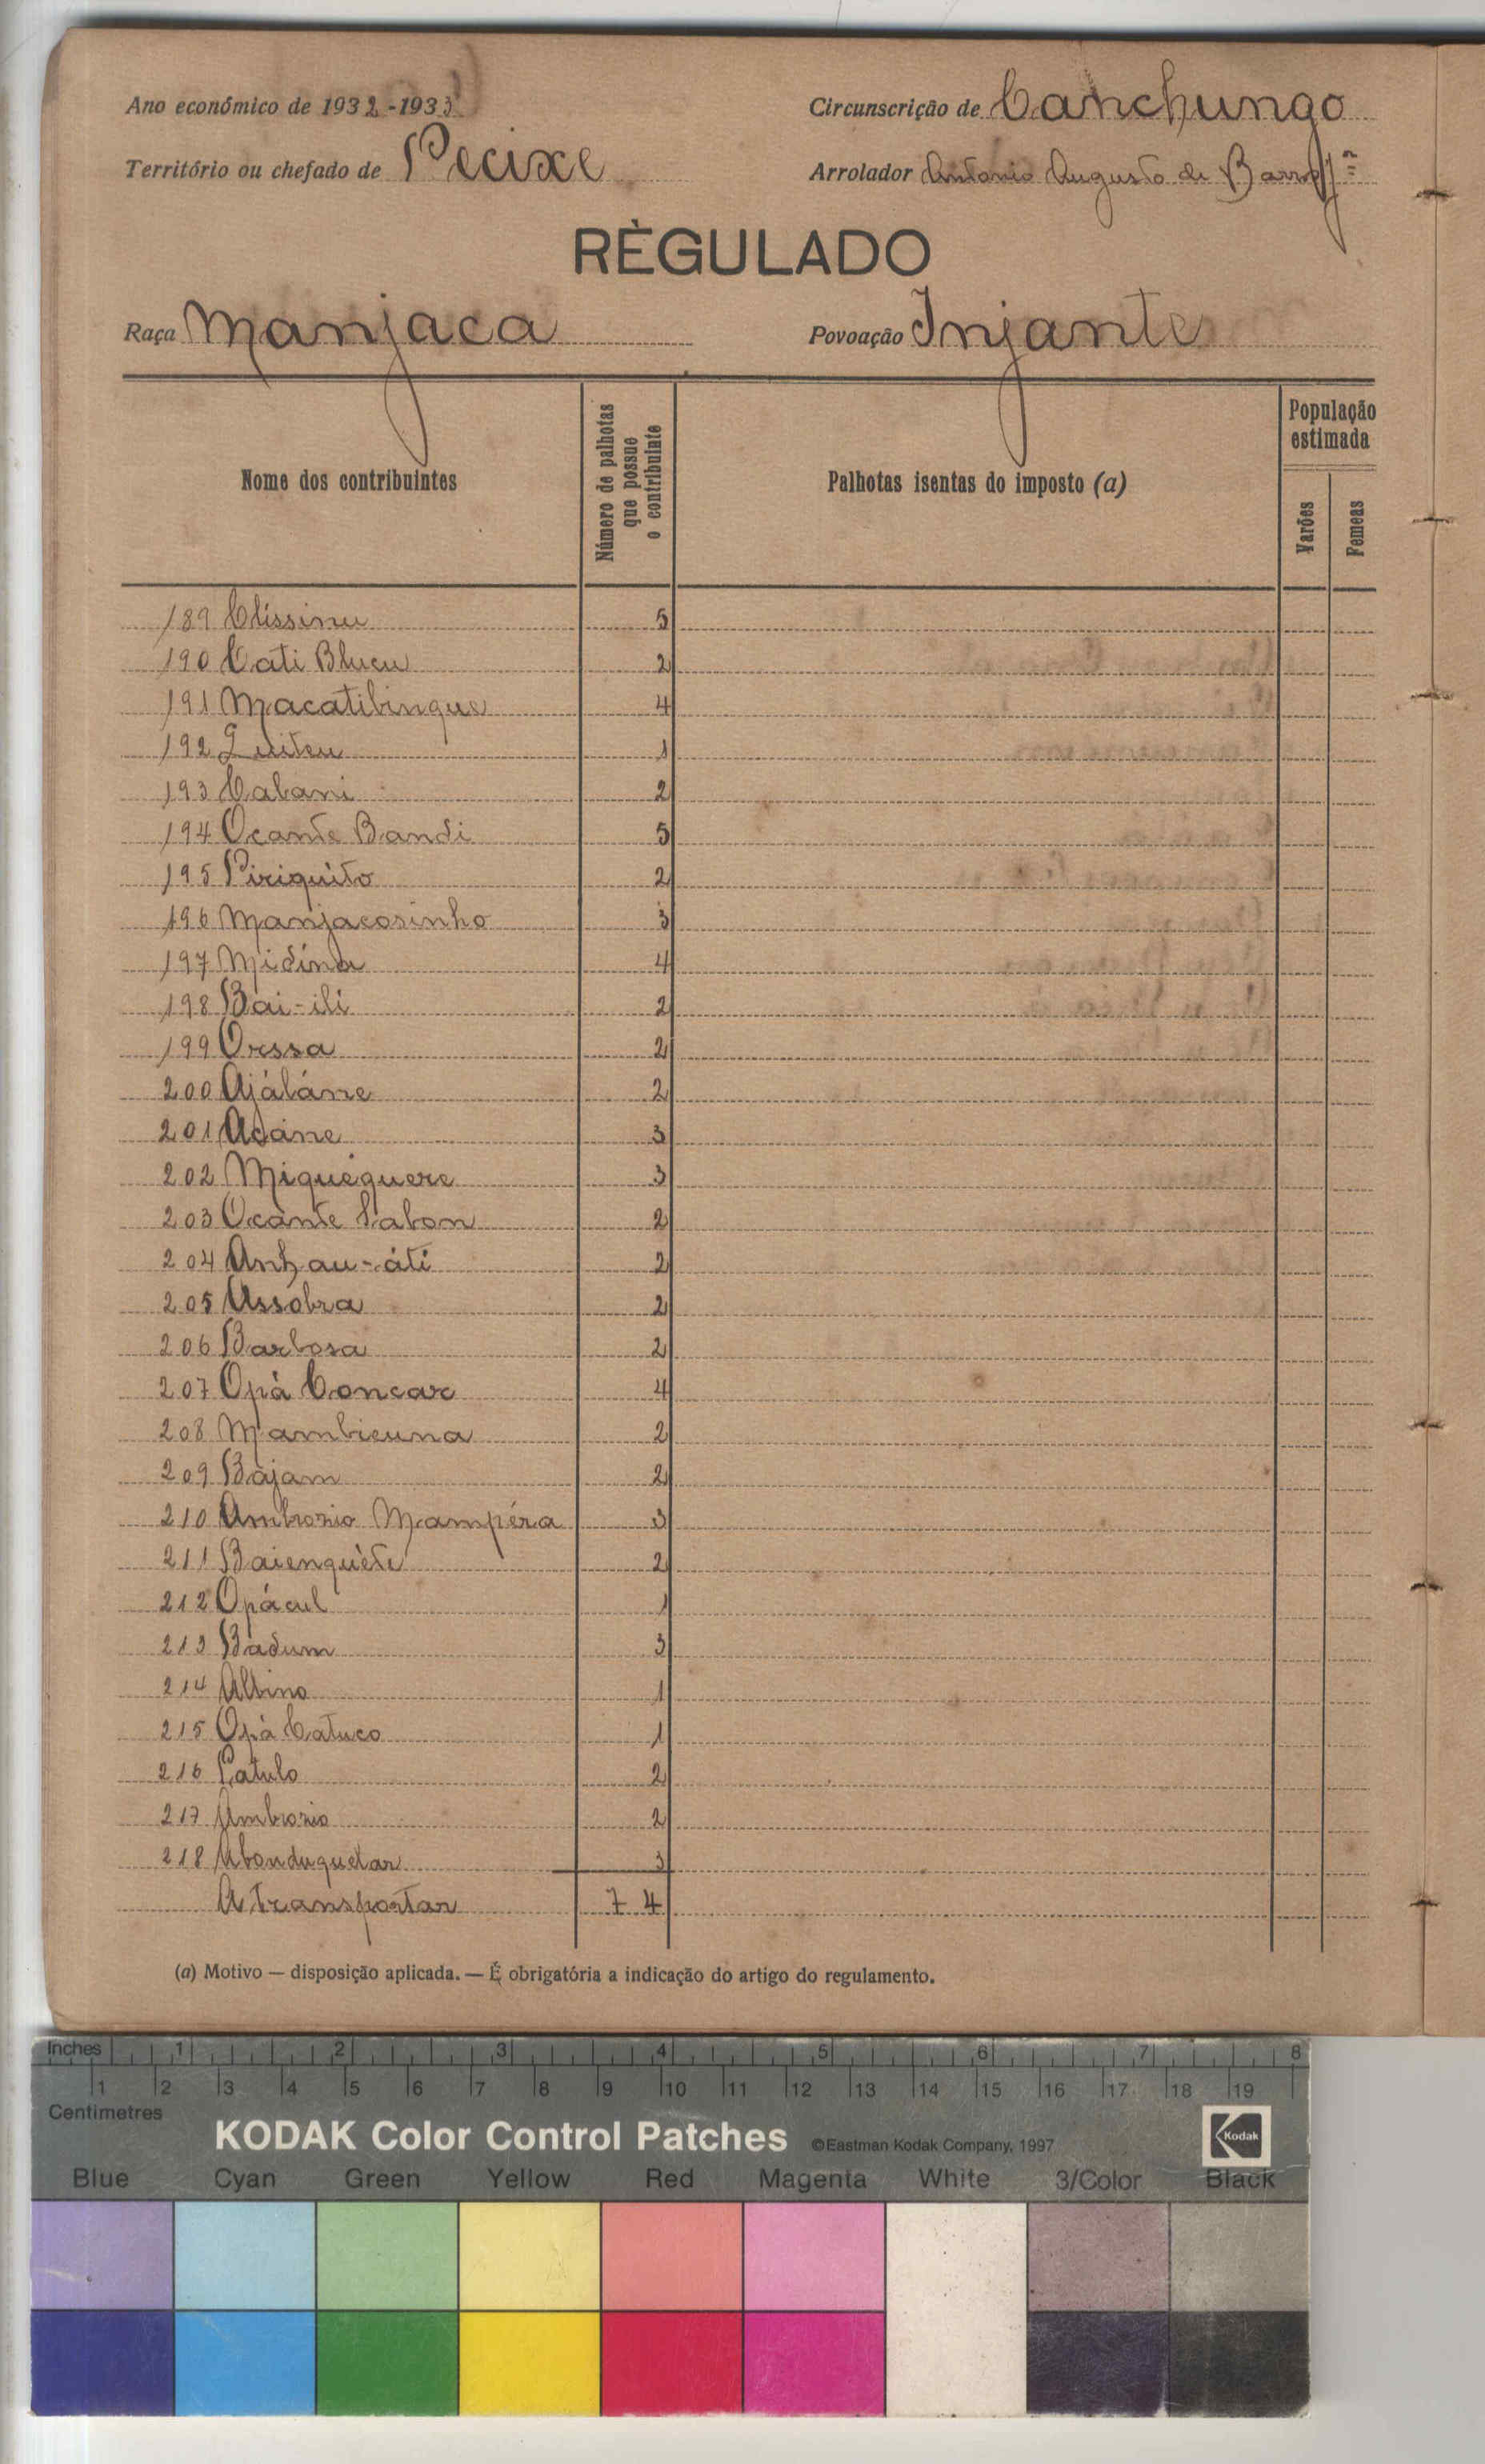 Ano económico de 1932-1933
Circunscrição de Canchungo
Território ou chefado de Pecixe
Arrolador Antonio Augusto de Barros Jr
RÈGULADO
Raça Manjaca
Povoação Injante
Nome dos contribuintes
Número de palhotas que possue o contribuinte
Palhotas isentas do imposto (a)
População estimada
Varões
Femeas
189 Clissinu 5
190 Cati Blucu 2
191 Macatibingue 4
192 Quiteu 1
193 Cabani 2
194 Ocante Bandi 5
195 Piriquito 2
196 Manjacosinho 3
197 Midina 4
198 Bai-ili 2
199 Orssa 2
200 Ajáláne 2
201 Adáne 3
202 Miqueguere 3
203 Ocante Sabon 2
204 Anhau-áti 2
205 Assobra 2
206 Barbosa 2
207 Opá Concar 4
208 Mambieuna 2
209 Bajam 2
210 Ambrozio Mampéra 3
211 Baienquéte 2
212 Opácul 1
213 Badum 3
214 Albino 1
215 Opá Catuco 1
216 Catulo 2
217 Ambrozio 2
218 Abonduguelan 3
A transportar 74
(a) Motivo — disposição aplicada. — É obrigatória a indicação do artigo do regulamento.
Inches 1 2 3 4 5 6 7 8
1 2 3 4 5 6 7 8 9 10 11 12 13 14 15 16 17 18 19
Centimetres
KODAK Color Control Patches ©Eastman Kodak Company, 1997 Kodak
Blue Cyan Green Yellow Red Magenta White 3/Color Black